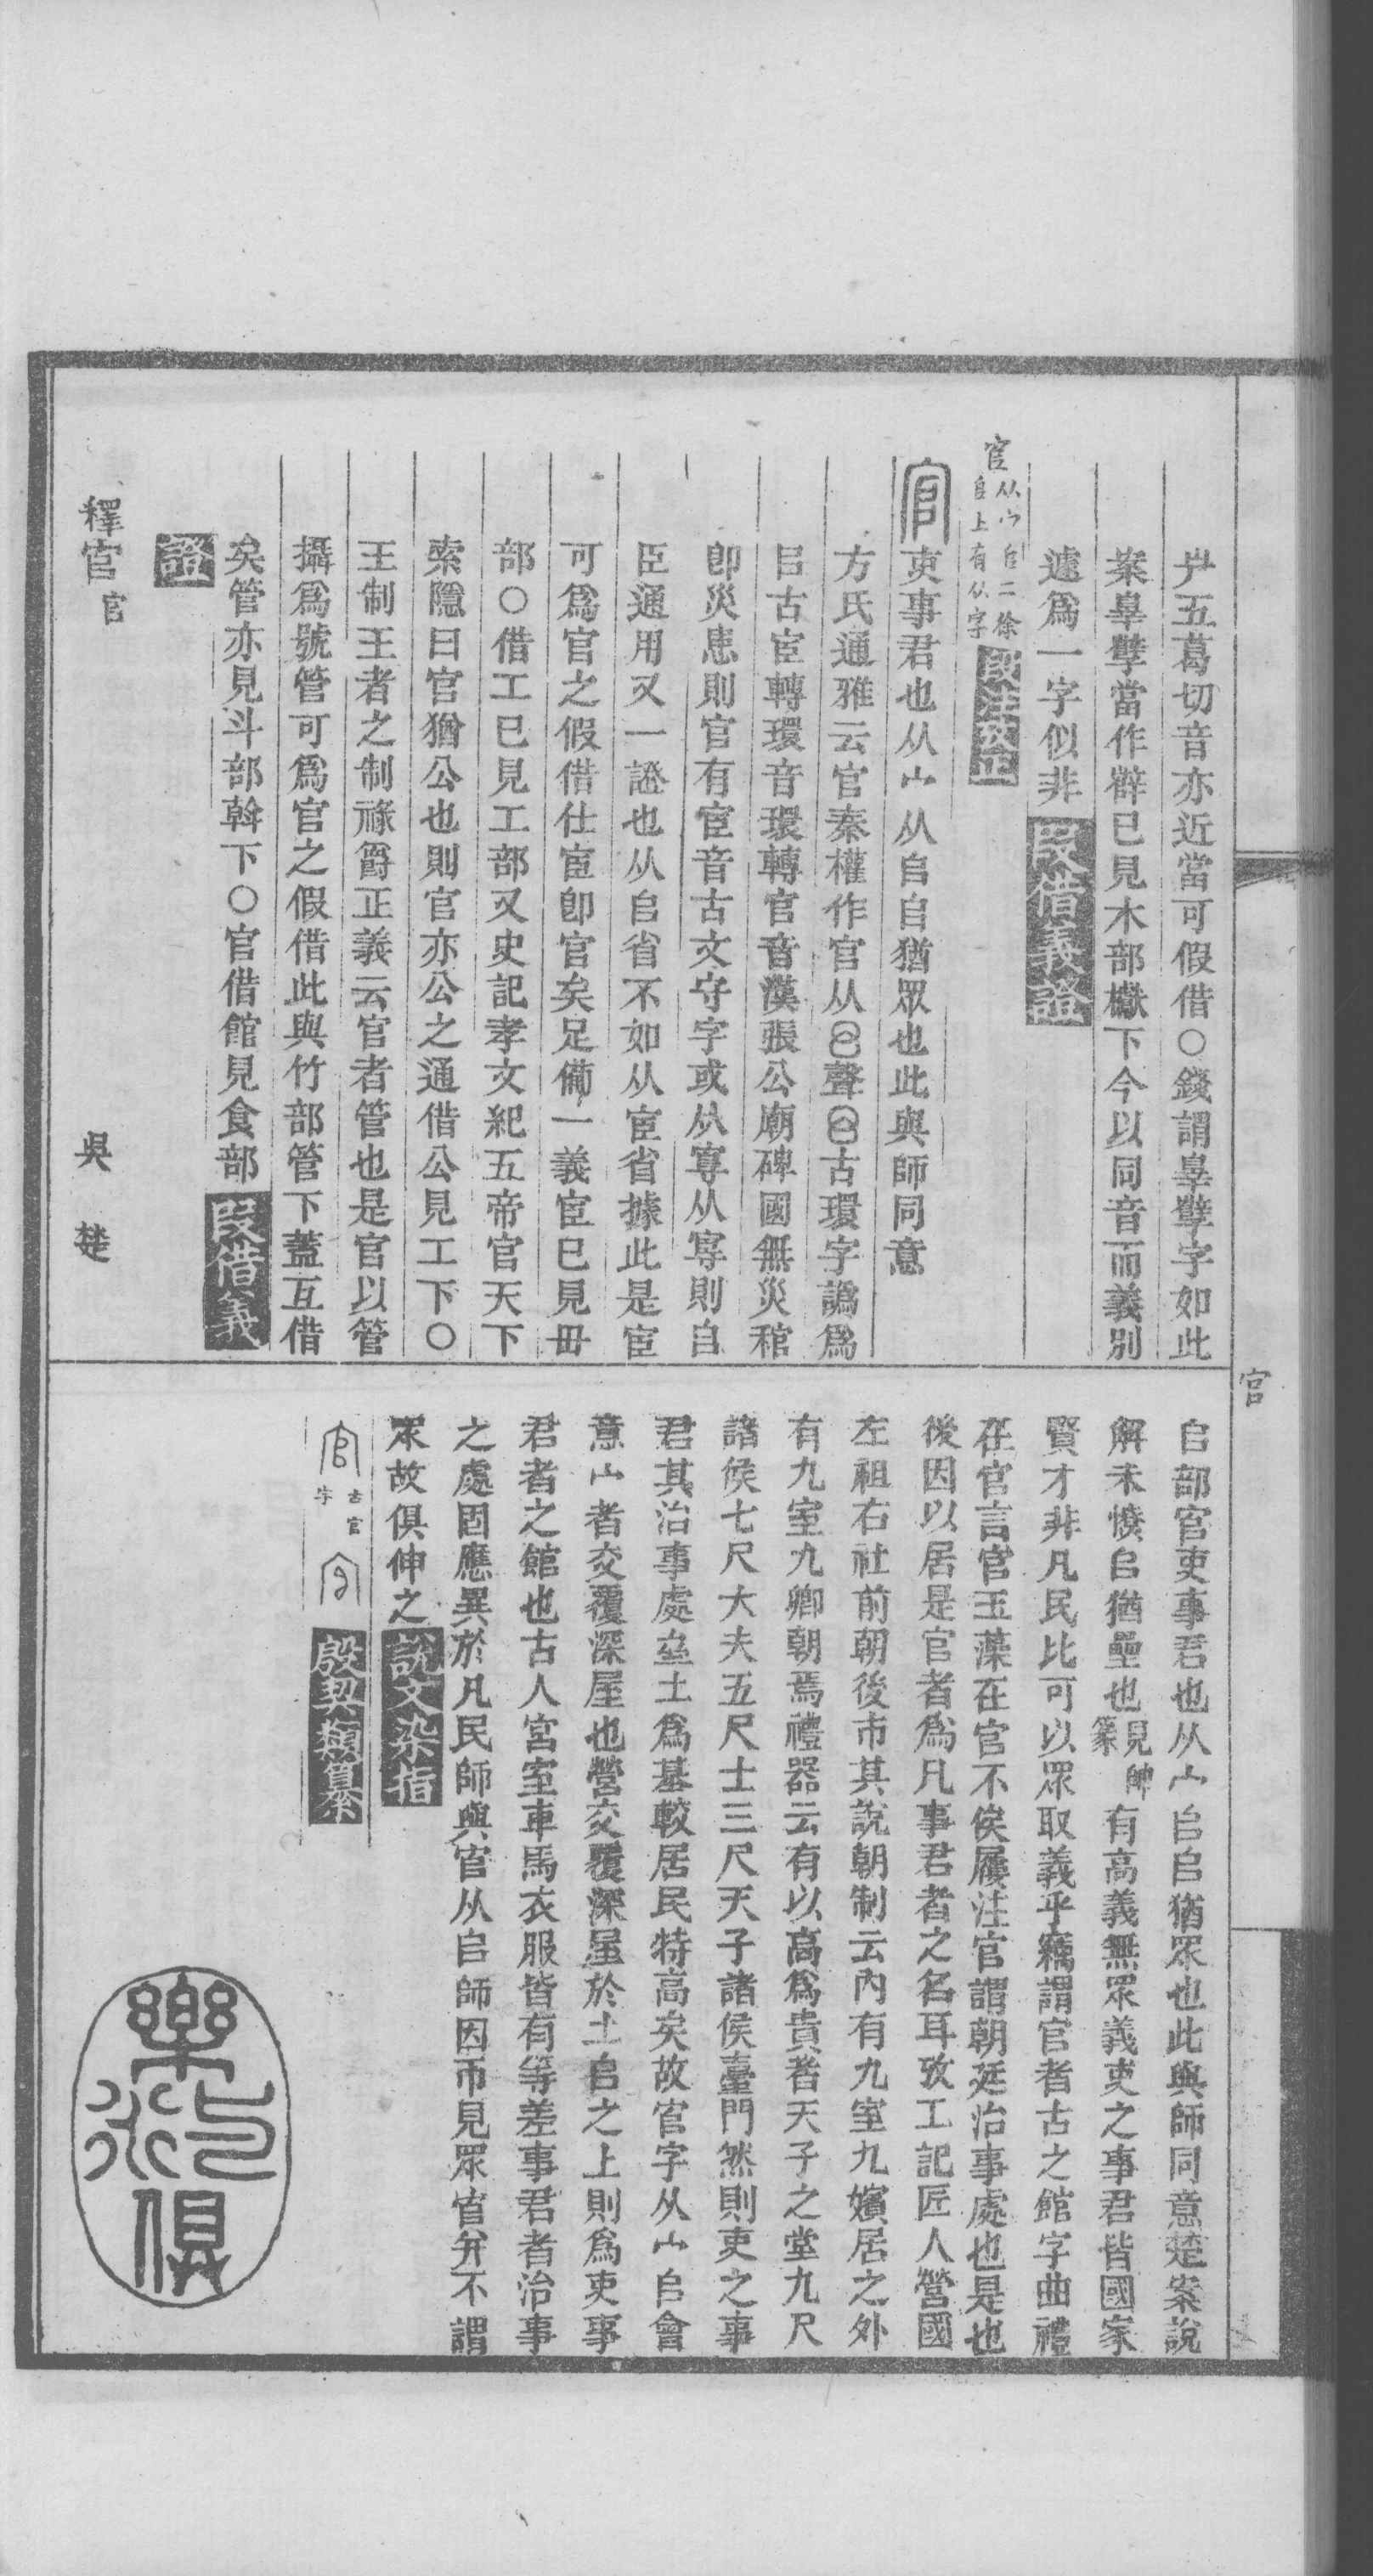 屵五葛切音亦近當可假借○錢謂辠孼字如此
案辠孼當作㸷已見木部櫱下今以同音而義別
遽爲一字似非叚借義證
官从宀𠂤二徐𠂤上有从字段注校正
官吏事君也从宀从𠂤𠂤猶眾也此與師同意
方氏通雅云官秦權作官从聲古環字譌爲
㠯古宦轉環音環轉官音漢張公廟碑國無災䅁
卽災患則官有宦音古文守字或从𡬳从𡬳則𠂤
臣通用又一證也从𠂤省不如从宦省據此是宦
可爲官之假借仕宦卽官矣足備一義宦已見毌
部○借工已見工部又史記孝文紀五帝官天下
索隱曰官猶公也則官亦公之通借公見工下○
王制王者之制祿爵正義云官者管也是官以管
攝爲號管可爲官之假借此與竹部管下蓋互借
矣管亦見斗部斡下○官借館見食部叚借義
證
釋官官
吳楚
官
𠂤部官吏事君也从宀𠂤𠂤猶眾也此與師同意楚案說
解未憭𠂤猶壘也見帥篆有高義無眾義吏之事君皆國家
賢才非凡民比可以眾取義乎竊謂官者古之館字曲禮
在官言官玉藻在官不俟屨注官謂朝廷治事處也是也
後因以居是官者爲凡事君者之名耳攷工記匠人營國
左祖右社前朝後市其說朝制云內有九室九嬪居之外
有九室九卿朝焉禮器云有以高爲貴者天子之堂九尺
諸侯七尺大夫五尺士三尺天子諸侯臺門然則吏之事
君其治事處壘土爲基較居民特高矣故官字从宀𠂤會
意宀者交覆深屋也營交覆深屋於土𠂤之上則爲吏事
君者之館也古人宮室車馬衣服皆有等差事君者治事
之處固應異於凡民師與官从𠂤師因帀見眾官弁不謂
眾故俱伸之說文染指
官古官字官殷契類纂
樂衍印俱